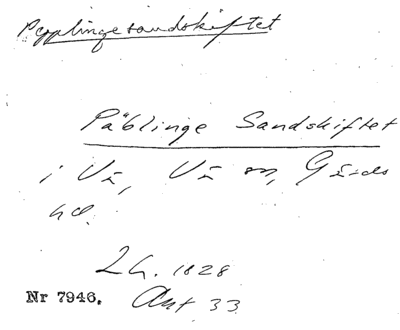 Pepplingesandskiftet
Päblinge Sandskiftet
i Vä, Vä sn, Gärds
hd.
Lh. 1828
Nr 7946. Akt 33